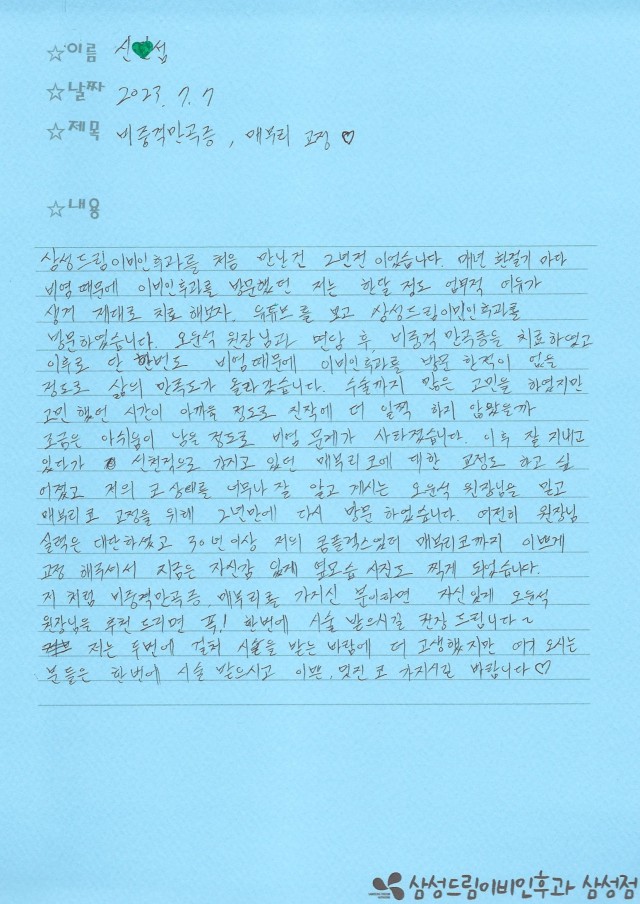 ☆이름 신💚섭
☆날짜 2023. 7. 7
☆제목 비중격만곡증, 매부리 교정 ♡
☆내용
삼성드림이비인후과를 처음 만난건 2년전 이었습니다. 매년 환절기 마다
비염 때문에 이비인후과를 방문했던 저는 한달 정도 업무적 여유가
생겨 제대로 치료 해보자. 유튜브를 보고 삼성드림이비인후과를
방문하였습니다. 오윤석 원장님과 면담 후, 비중격 만곡증을 치료하였고
이후로 단 한번도 비염때문에 이비인후과를 방문 한적이 없을
정도로 삶의 만족도가 올라갔습니다. 수술까지 많은 고민을 하였지만
고민 했던 시간이 아까울 정도로 진작에 더 일찍 하지 않았을까
조금은 아쉬움이 남을 정도로 비염 문제가 사라졌습니다. 이후 잘 지내고
있다가 선천적으로 가지고 있던 매부리코에 대한 교정도 하고 싶
어졌고 저의 코 상태를 너무나 잘 알고 계시는 오윤석 원장님을 믿고
매부리코 교정을 위해 2년만에 다시 방문 하였습니다. 여전히 원장님
실력은 대단하셨고 30년이상 저의 콤플렉스였던 매부리코까지 이쁘게
교정 해주셔서 지금은 자신감 있게 옆모습 사진도 찍게 되었습니다.
저 처럼 비중격만곡증, 매부리를 가지신 분이라면 자신있게 오윤석
원장님을 추천 드리면 꼭! 한번에 시술 받으시길 권장 드립니다~
저는 두번에 걸쳐 시술을 받는 바람에 더 고생했지만 여기 오시는
분들은 한번에 시술 받으시고 이쁜, 멋진 코 가지시길 바랍니다♡
삼성드림이비인후과 삼성점